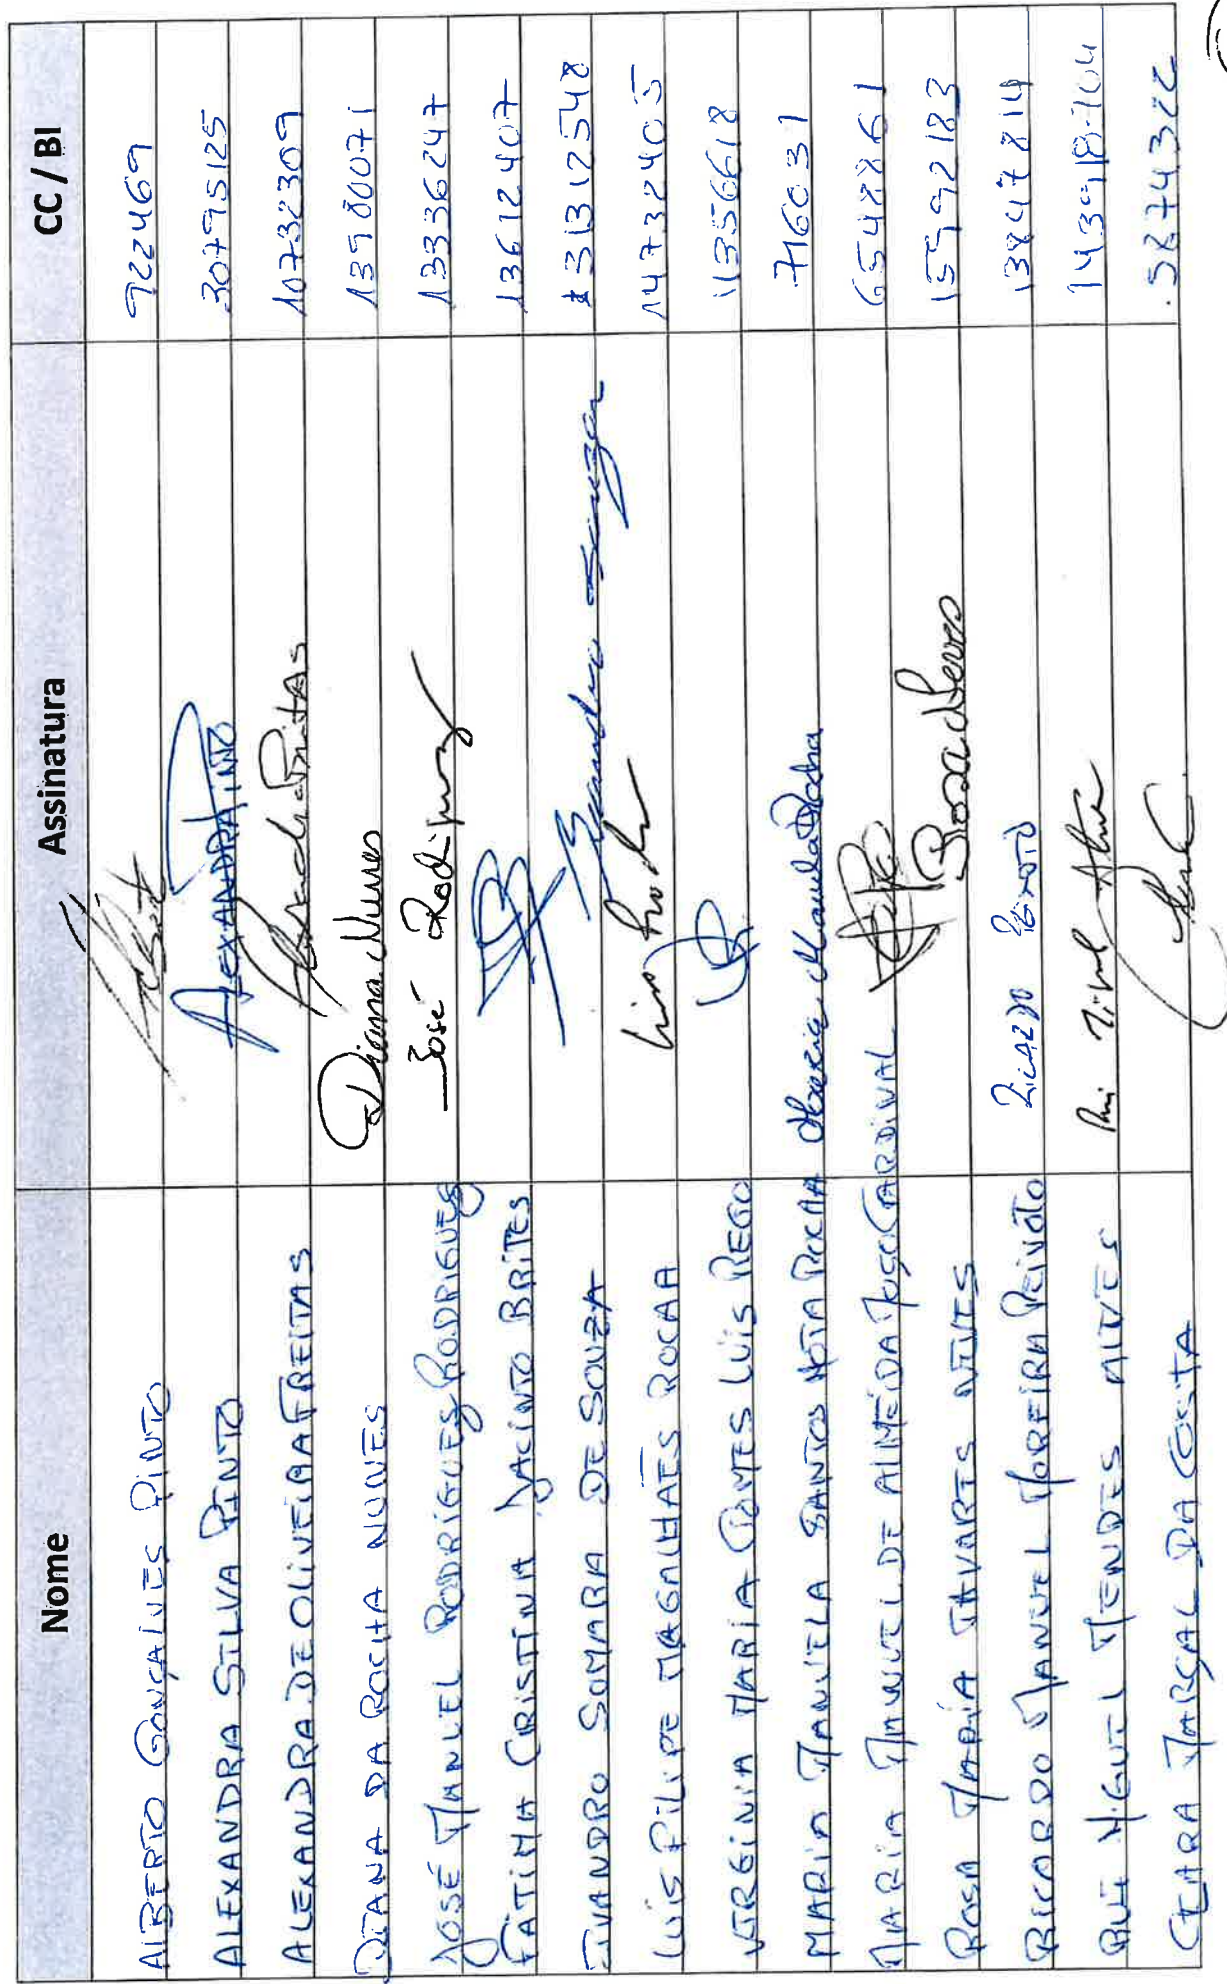 Nome Assinatura CC / BI
ALBERTO GONÇALVES PINTO 922469
ALEXANDRA SILVA PINTO ALEXANDRA PINTO 30795125
ALEXANDRA DE OLIVEIRA FREITAS Alexandra Freitas 10732309
DIANA DA ROCHA NUNES Diana Nunes 13980071
JOSÉ MANUEL RODRIGUES RODRIGUES José Rodrigues 13336247
FATIMA CRISTINA JACINTO BRITES 13612407
IVANDRO SOMABRA DE SOUZA 31312548
LUÍS FILIPE MAGALHÃES ROCHA 14732405
VIRGINIA MARIA GOMES LUÍS REGO 11356618
MARIA MANUELA SANTOS MOTA ROCHA Maria Manuela Rocha 7116031
MARIA MANUEL DE ALMEIDA CARDINAL 6548861
ROSA MARIA TAVARES NEVES Rosa Neves 15992183
RICARDO MANUEL MOREIRA PEIXOTO RICARDO PEIXOTO 13847814
RUI MIGUEL MENDES ALVES Rui Miguel Alves
CLARA MARÇAL DA COSTA 5874322